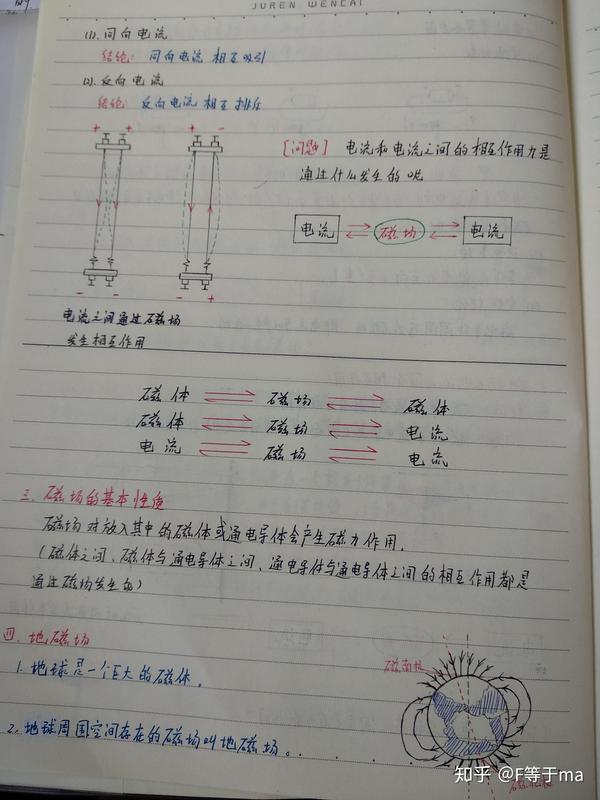 JUREN WENCAI
(1). 同向电流
结论: 同向电流 相互吸引
(2). 反向电流
结论: 反向电流 相互排斥
+ + + -
[问题] 电流和电流之间的相互作用力是
通过什么发生的呢
电流 磁场 电流
- - - +
电流之间通过磁场
发生相互作用
磁体 磁场 磁体
磁体 磁场 电流
电流 磁场 电流
三. 磁场的基本性质
磁场对放入其中的磁体或通电导体会产生磁力作用.
(磁体之间、磁体与通电导体之间、通电导体与通电导体之间的相互作用都是
通过磁场发生的)
四. 地磁场
磁南极
1. 地球是一个巨大的磁体.
2. 地球周围空间存在的磁场叫地磁场.
知乎 @F等于ma